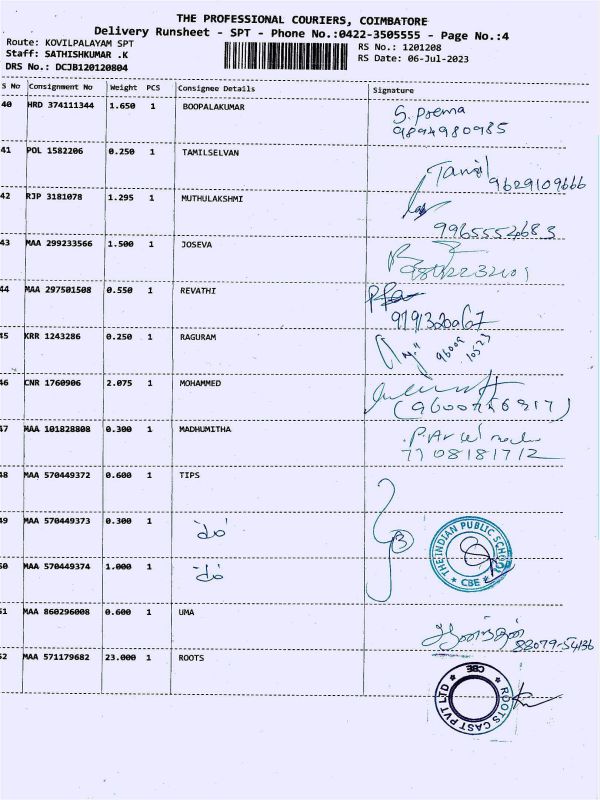 THE PROFESSIONAL COURIERS, COIMBATORE
Delivery Runsheet - SPT - Phone No.:0422-3505555 - Page No.:4
Route: KOVILPALAYAM SPT
RS No.: 1201208
Staff: SATHISHKUMAR .K
RS Date: 06-Jul-2023
DRS No.: DCJB120120804
S No Consignment No Weight PCS Consignee Details Signature
40 HRD 374111344 1.650 1 BOOPALAKUMAR S. Prema
9894980985
41 POL 1582206 0.250 1 TAMILSELVAN Tamil
9629109666
42 RJP 3181078 1.295 1 MUTHULAKSHMI
9965552683
43 MAA 299233566 1.500 1 JOSEVA
44 MAA 297501508 0.550 1 REVATHI
45 KRR 1243286 0.250 1 RAGURAM
46 CNR 1760906 2.075 1 MOHAMMED
47 MAA 101828808 0.300 1 MADHUMITHA
7708181712
48 MAA 570449372 0.600 1 TIPS
49 MAA 570449373 0.300 1 do
3
THE INDIAN PUBLIC SCHOOL
CBE
50 MAA 570449374 1.000 1 do
51 MAA 860296008 0.600 1 UMA
88079-54136
52 MAA 571179682 23.000 1 ROOTS
ROOTS CAST PVT LTD
CBE